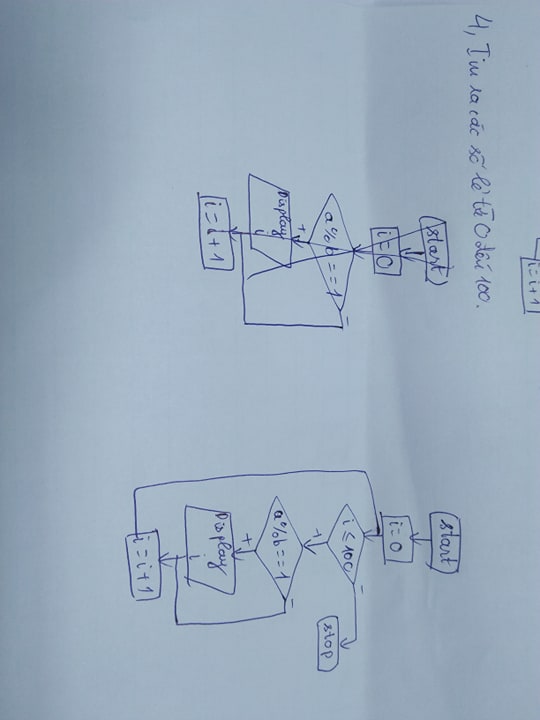 4, Tìm ra các số lẻ từ 0 đến 100.
i=i+1
start
i=0
a%b==1
+
-
Display
i
i=i+1
start
i=0
i≤100
+
-
stop
a%b==1
+
-
Display
i
i=i+1